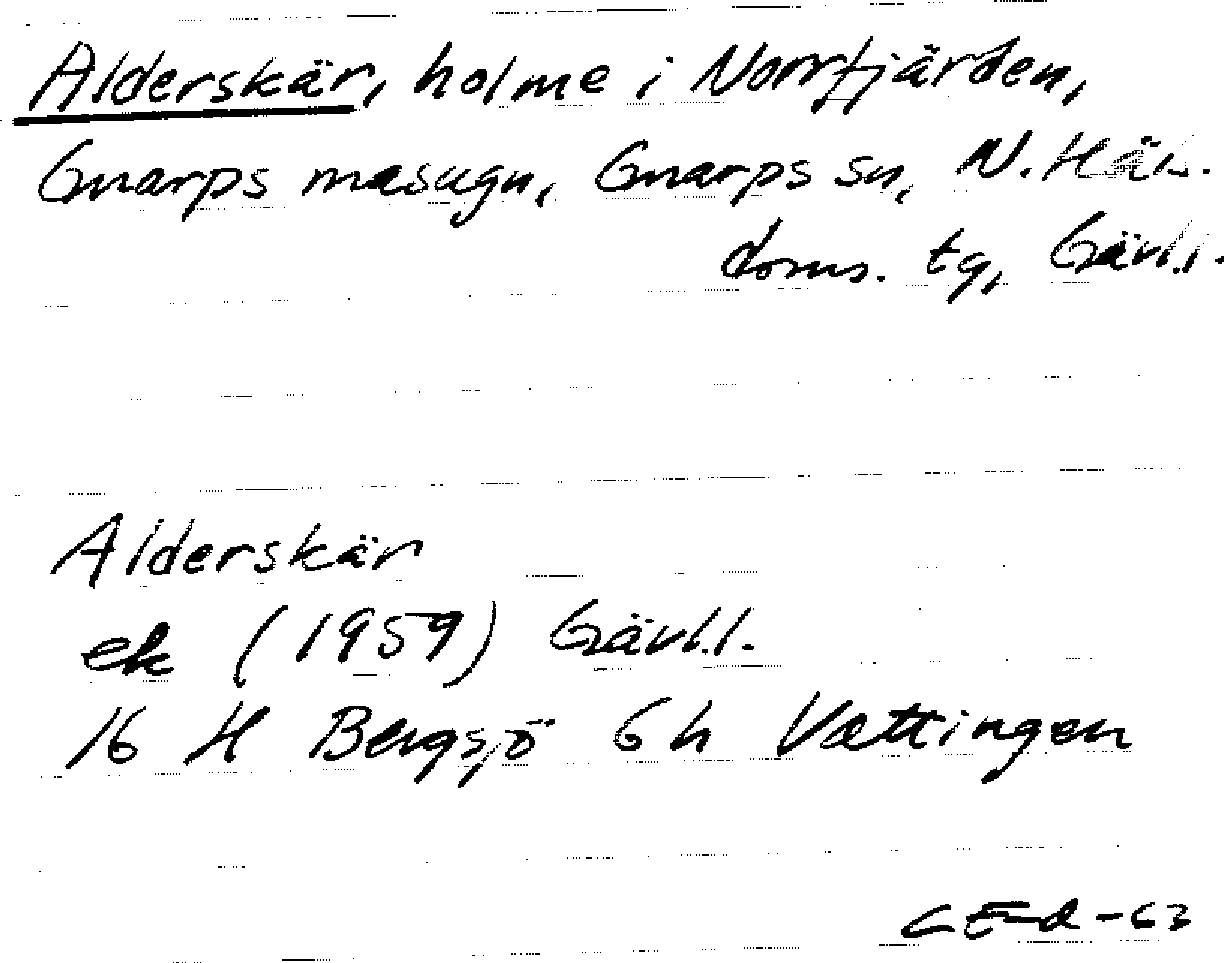 Alderskär, holme i Norrfjärden,
Gnarps masugn, Gnarps sn, N. Häls.
doms. tg, Gävl.l.
Alderskär
ek (1959) Gävl.l.
16 H Bergsjö 6h Vattingen